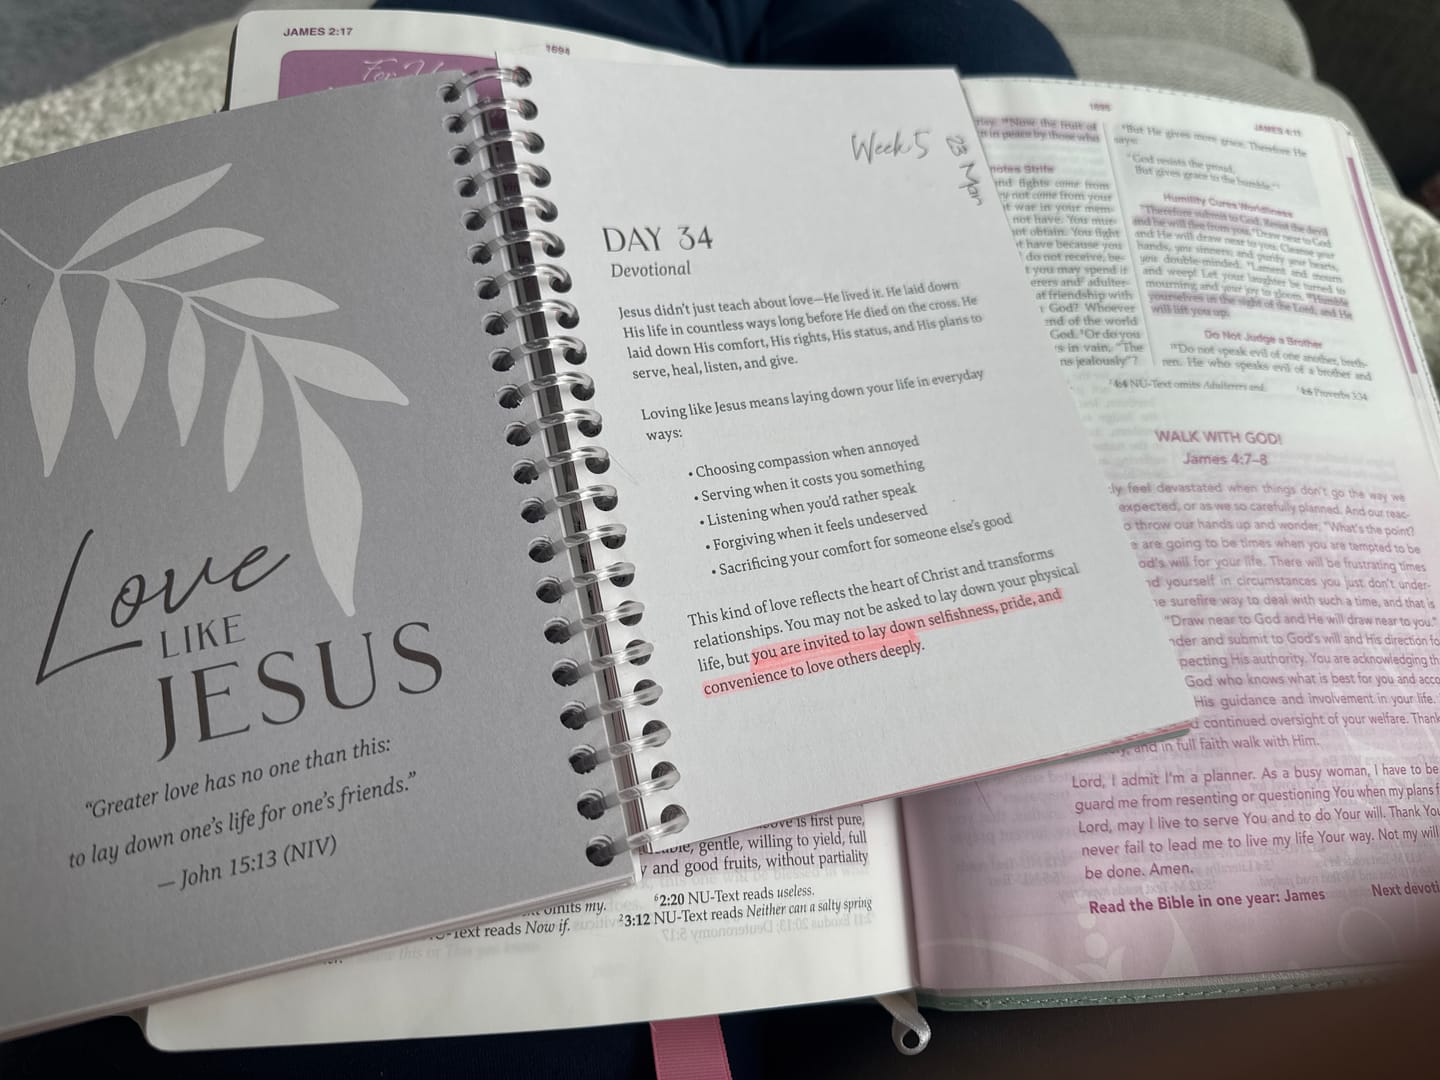 JAMES 2:17
1694
Love
LIKE
JESUS
“Greater love has no one than this:
to lay down one’s life for one’s friends.”
— John 15:13 (NIV)
Week 5
23 Mar
DAY 34
Devotional
Jesus didn’t just teach about love—He lived it. He laid down
His life in countless ways long before He died on the cross. He
laid down His comfort, His rights, His status, and His plans to
serve, heal, listen, and give.
Loving like Jesus means laying down your life in everyday
ways:
• Choosing compassion when annoyed
• Serving when it costs you something
• Listening when you’d rather speak
• Forgiving when it feels undeserved
• Sacrificing your comfort for someone else’s good
This kind of love reflects the heart of Christ and transforms
relationships. You may not be asked to lay down your physical
life, but you are invited to lay down selfishness, pride, and
convenience to love others deeply.
is first pure,
gentle, willing to yield, full
and good fruits, without partiality
omits my.
reads Now if.
⁶2:20 NU-Text reads useless.
²3:12 NU-Text reads Neither can a salty spring
1695
JAMES 4:11
"Now the fruit of
in peace by those who
Strife
fights come from
not come from your
war in your mem-
not have. You mur-
obtain. You fight
have because you
do not receive, be-
you may spend it
and adulter-
friendship with
God? Whoever
of the world
God. Or do you
in vain, "The
jealously"?
But He gives more grace. Therefore He
says:
"God resists the proud,
But gives grace to the humble."
Humility Cures Worldliness
Therefore submit to God. Resist the devil
and he will flee from you. Draw near to God
and He will draw near to you. Cleanse your
hands, you sinners; and purify your hearts,
you double-minded. Lament and mourn
and weep! Let your laughter be turned to
mourning and your joy to gloom. Humble
yourselves in the sight of the Lord, and He
will lift you up.
Do Not Judge a Brother
Do not speak evil of one another, breth-
ren. He who speaks evil of a brother and
4:4 NU-Text omits Adulterers and.
4:6 Proverbs 3:34
WALK WITH GOD!
James 4:7–8
feel devastated when things don't go the way we
expected, or as we so carefully planned. And our reac-
throw our hands up and wonder, "What's the point?
are going to be times when you are tempted to be
will for your life. There will be frustrating times
yourself in circumstances you just don't under-
surefire way to deal with such a time, and that is
"Draw near to God and He will draw near to you."
and submit to God's will and His direction
His authority. You are acknowledging
God who knows what is best for you and
His guidance and involvement in your life.
continued oversight of your welfare.
and in full faith walk with Him.
Lord, I admit I'm a planner. As a busy woman, I have to be
guard me from resenting or questioning You when my plans
Lord, may I live to serve You and to do Your will. Thank
never fail to lead me to live my life Your way. Not my will
be done. Amen.
Read the Bible in one year: James
Next